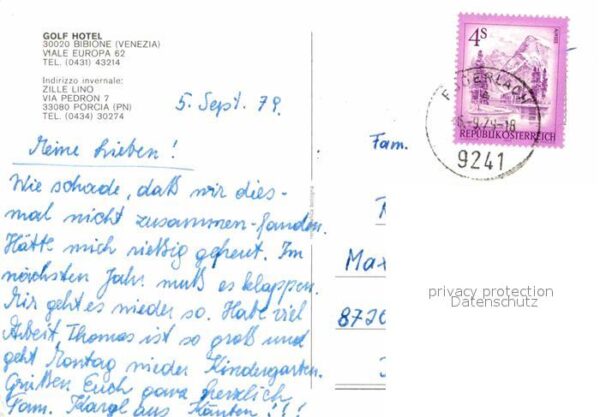 GOLF HOTEL
30020 BIBIONE (VENEZIA)
VIALE EUROPA 62
TEL. (0431) 43214
Indirizzo invernale:
ZILLE LINO
VIA PEDRON 7
33080 PORCIA (PN)
TEL. (0434) 30274
5. Sept. 79.
Meine Lieben!
Wie schade, daß wir dies-
mal nicht zusammen-fanden.
Hätte mich rießig gefreut. Im
nächsten Jahr muß es klappen.
Mir geht es wieder so. Habe viel
Arbeit, Thomas ist so groß und
geht Montag wieder Kindergarten.
Grüßen Euch ganz herzlich
Fam. Kargl aus Kärnten!!!
4S
REPUBLIK ÖSTERREICH
-9.79-18
9241
Fam.
Max
8720
privacy protection
Datenschutz